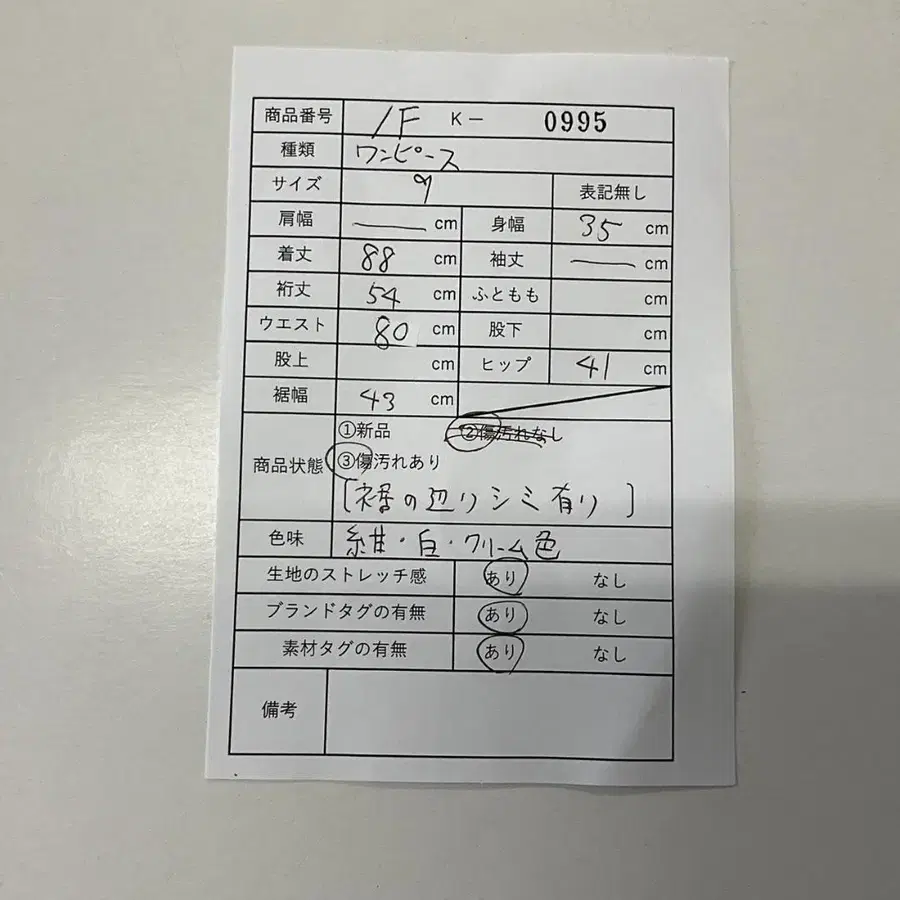 商品番号 1F K- 0995
種類 ワンピース
サイズ 9 表記無し
肩幅 — cm 身幅 35 cm
着丈 88 cm 袖丈 — cm
裄丈 54 cm ふともも cm
ウエスト 80 cm 股下 cm
股上 cm ヒップ 41 cm
裾幅 43 cm
商品状態 ①新品 ②傷汚れなし
③傷汚れあり
[裾の辺りシミ有り]
色味 紺・白・クリーム色
生地のストレッチ感 あり なし
ブランドタグの有無 あり なし
素材タグの有無 あり なし
備考